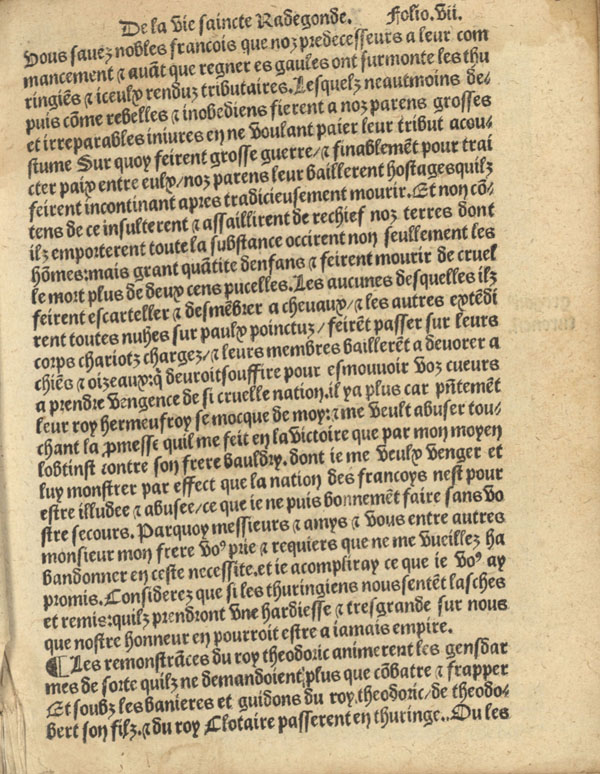 De la vie saincte Radegonde. Folio.vii.
Vous sauez nobles francois que noz predecesseurs a leur com
mancement ⁊ auãt que regner es gaules ont surmonte les thu
ringiẽs ⁊ iceulx renduz tributaires. Lesquelz neautmoins de-
puis cõme rebelles ⁊ inobediens fierent a noz parens grosses
et irreparables iniures en ne voulant paier leur tribut acou-
stume Sur quoy feirent grosse guerre/⁊ finablemẽt pour trai
cter paix entre eulx/noz parens leur baillerent hostages quilz
feirent incontinant apres tradicieusement mourir. Et non cõ-
tens de ce insulterent ⁊ assaillirent de rechief noz terres dont
ilz emporterent toute la substance occirent non seullement les
hõmes:mais grant quãtite denfans ⁊ feirent mourir de cruel
le mort plus de deux cens pucelles. Les aucunes desquelles ilz
feirent escarteller ⁊ desmẽbrer a cheuaux/⁊ les autres extẽdi
rent toutes nuhes sur paulx poinctuz/feirẽt passer sur leurs
corps chariotz chargez/⁊ leurs membres baillerẽt a deuorer a
chiẽs ⁊ oizeaux:q̃ deuroit souffire pour esmouuoir voz cueurs
a prendre vengence de si cruelle nation. il ya plus car pñtemẽt
leur roy hermeufroy se mocque de moy:⁊ me veult abuser tou-
chant la ꝓmesse quil me feit en la victoire que par mon moyen
lobtinst contre son frere bauldry. dont ie me veulx venger et
luy monstrer par effect que la nation des francoys nest pour
estre illudee ⁊ abusee/ce que ie ne puis bonnemẽt faire sans vo
stre secours. Parquoy messieurs ⁊ amys ⁊ vous entre autres
monsieur mon frere voꝰ prie ⁊ requiers que ne me vueillez ha
bandonner en ceste necessite. et ie acompliray ce que ie voꝰ ay
promis. Considerez que si les thuringiens nous sentẽt lasches
et remis:quilz prendront vne hardiesse ⁊ tresgrande sur nous
que nostre honneur en pourroit estre a iamais empire.
¶ Les remonstrãces du roy theodoric animerent les gensdar
mes de sorte quilz ne demandoient plus que cõbatre ⁊ frapper
Et soubz les banieres et guidons du roy theodoric/de theodo-
bert son filz.⁊ du roy Clotaire passerent en thuringe.. Ou les